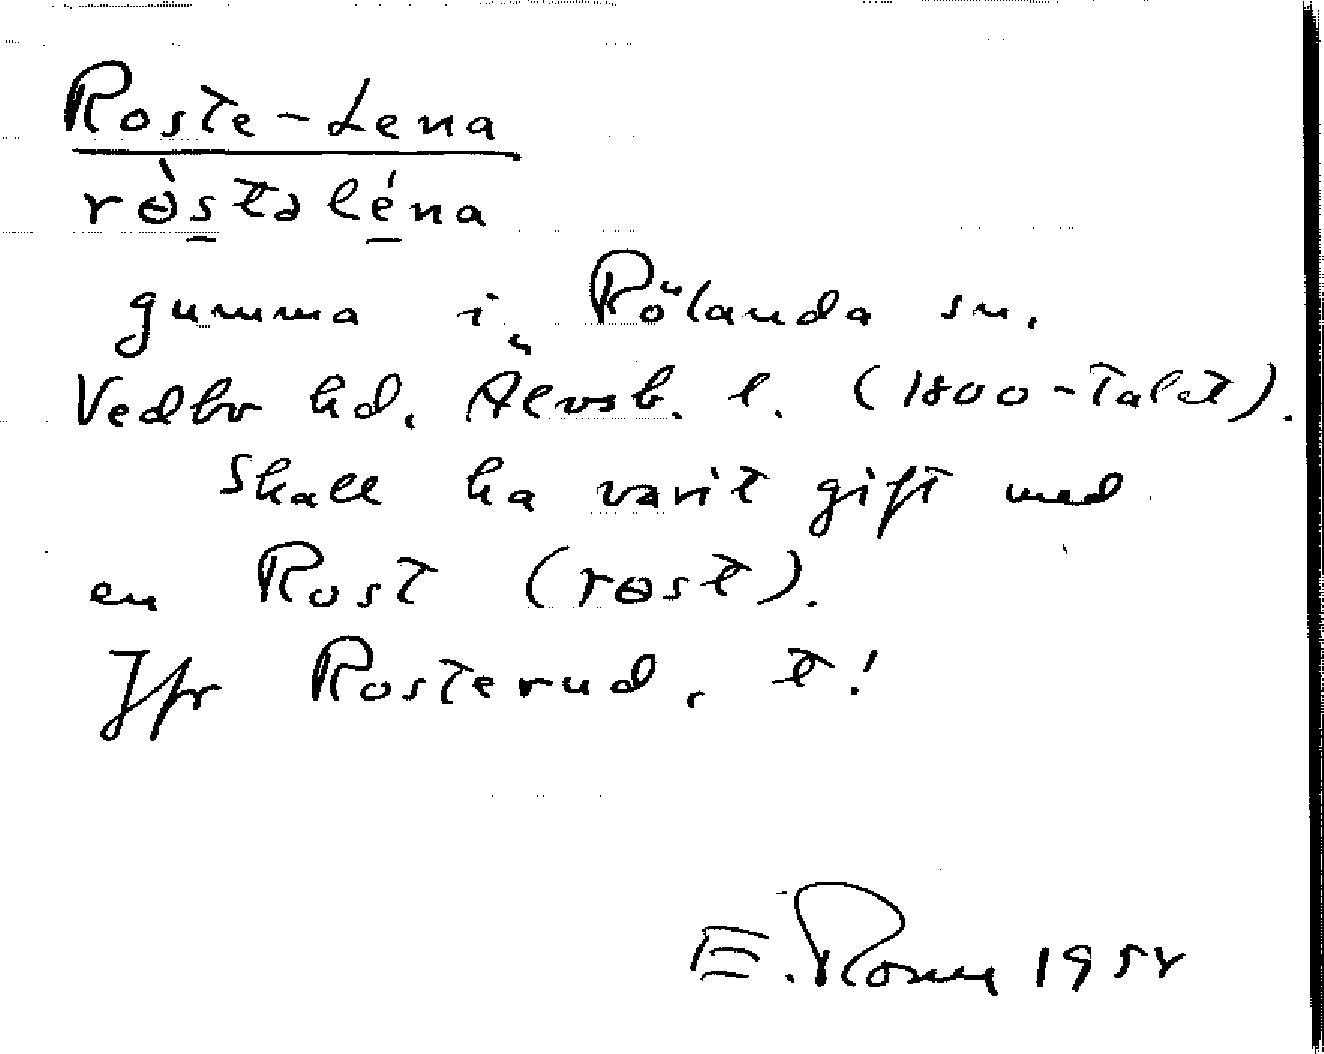 Roste-Lena
rɵ̀stəléna
gumma i Rölanda sn,
Vedbo hd, Älvsb. l. (1800-talet).
Skall ha varit gift med
en Rost (rɵst).
Jfr Rosterud, t!
E.